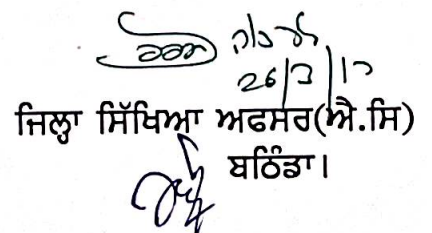 26/3/17
ਜਿਲ੍ਹਾ ਸਿੱਖਿਆ ਅਫਸਰ(ਐ.ਸਿ)
ਬਠਿੰਡਾ।